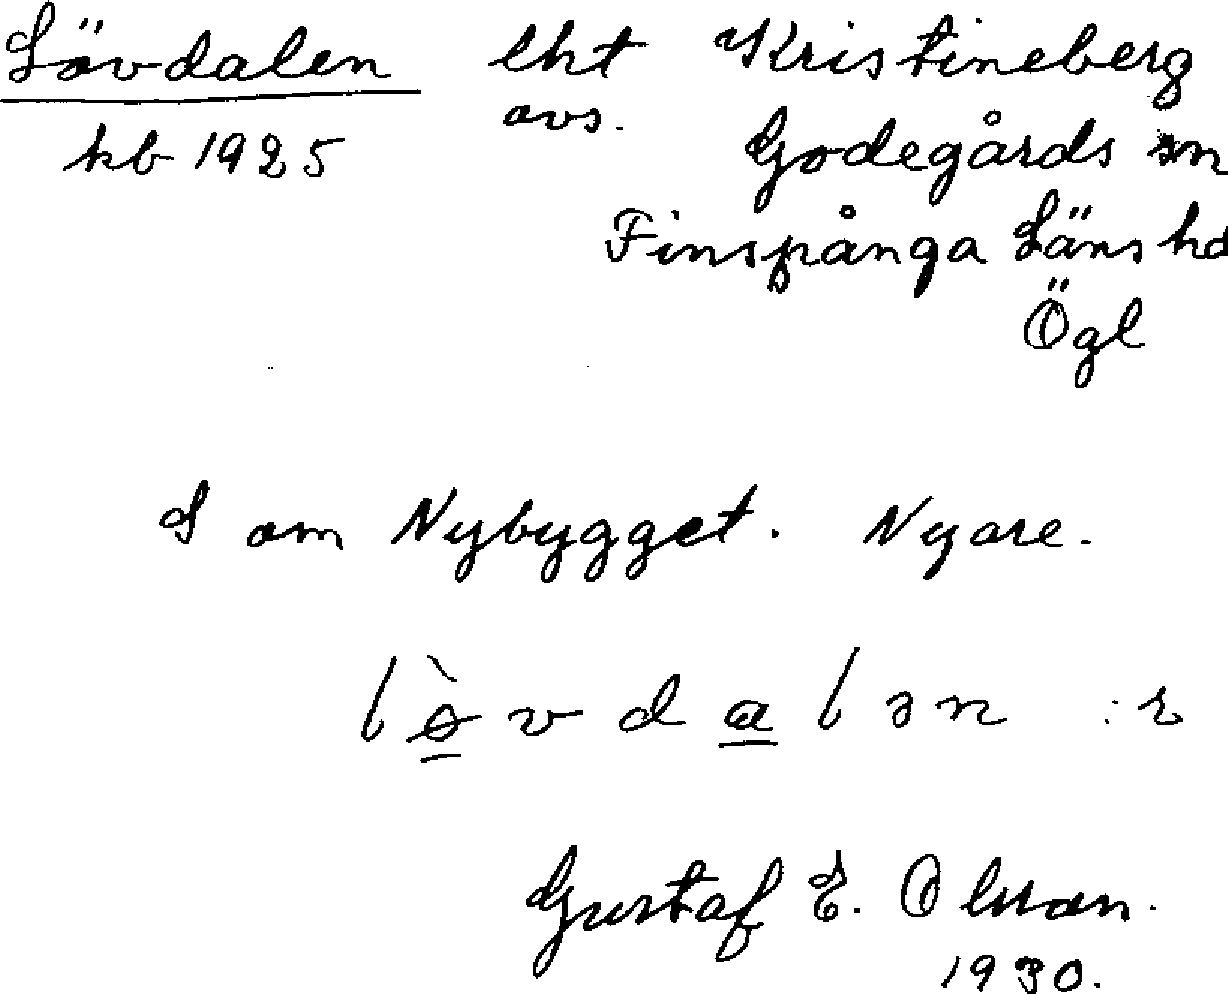 Lövdalen lht Kristineberg
kb 1925 avs. Godegårds sn
Finspånga Läns hd
Ögl
S om Nybygget. Nyare.
lø̀vdalən :r
Gustaf E. Olsson.
1930.